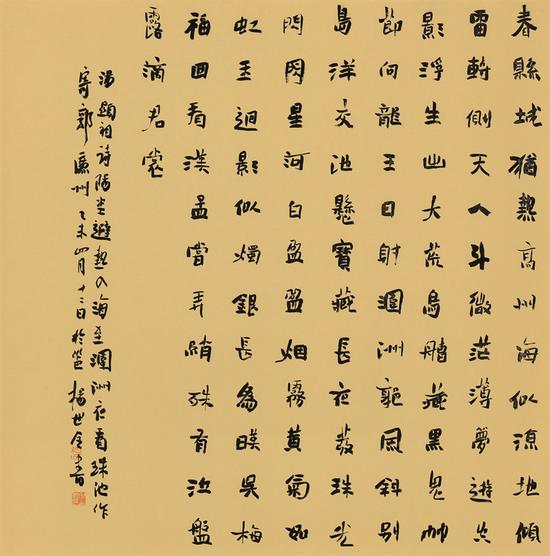 春縣城猶熱高州海似涼地傾
雷轉側天入斗微茫薄夢遊空
影浮生出大荒烏艚藏黑鬼竹
節向龍王日射潿洲郭風斜別
島洋交池懸寶藏長夜發珠光
閃閃星河白盈盈烟霧黃氣如
虹玉迴影似燭銀長為暎吳梅
福回看漢孟嘗弄綃殊有泣盤
露滴君裳
湯顯祖詩陽江避熱入海至潿洲夜看珠池作
寄郭廉州 乙未四月十三日於邕 楊世全書